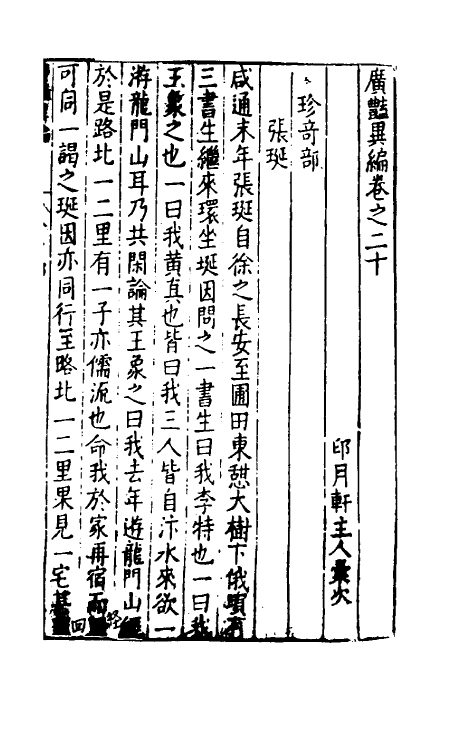 廣豔異編卷之二十
印月軒主人彙次
珍奇部
張珽
咸通末年張珽自徐之長安至圃田東憇大樹下俄頃有
三書生繼來環坐珽因問之一書生曰我李特也一曰我
王象之也一曰我黄真也皆曰我三人皆自汴水來欲一
游龍門山耳乃共閑論其王象之曰我去年遊龍門山經
於是路北一二里有一子亦儒流也命我於家再宿而
可同一謁之珽因亦同行至路北一二里果見一宅甚